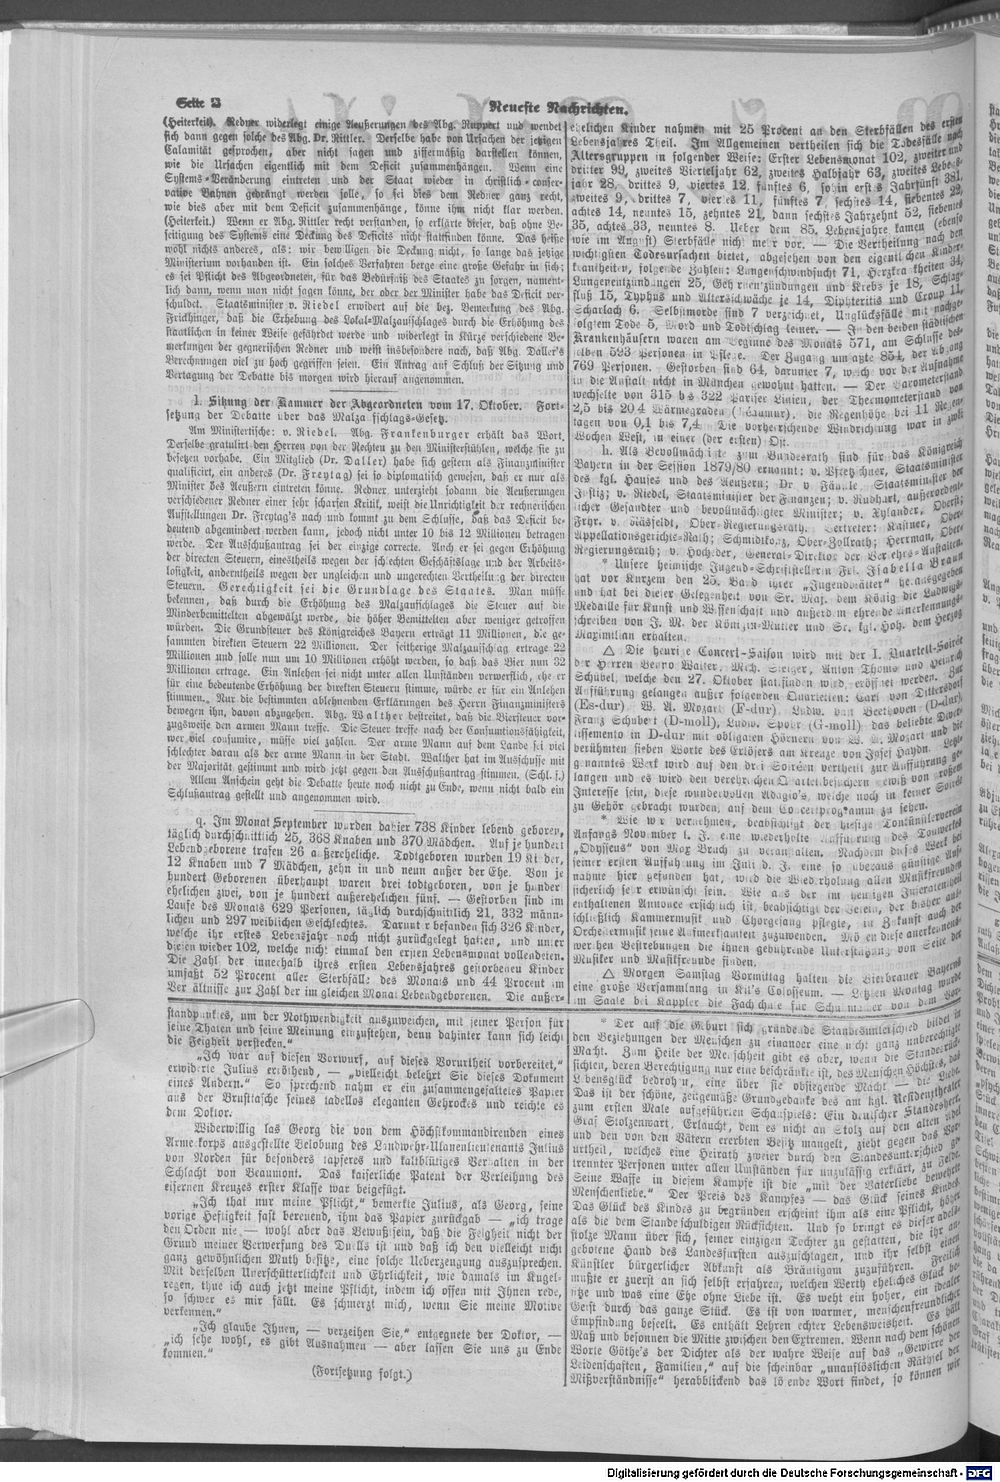 Seite 2
Neueste Nachrichten.
(Heiterkeit). Redner widerlegt einige Aeußerungen des Abg. Ruppert und wendet
sich dann gegen solche des Abg. Dr. Rittler. Derselbe habe von Ursachen der jetzigen
Calamität gesprochen, aber nicht sagen und ziffermäßig darstellen können,
wie die Ursachen eigentlich mit dem Deficit zusammenhängen. Wenn eine
Systems-Veränderung eintreten und der Staat wieder in christlich-conser-
vative Bahnen gedrängt werden solle, so sei dies dem Redner ganz recht,
wie dies aber mit dem Deficit zusammenhänge, könne ihm nicht klar werden.
(Heiterkeit.) Wenn er Abg. Rittler recht verstanden, so erklärte dieser, daß ohne Be-
seitigung des Systems eine Deckung des Deficits nicht stattfinden könne. Das heiße
wohl nichts anderes, als: wir bewilligen die Deckung nicht, so lange das jetzige
Ministerium vorhanden ist. Ein solches Verfahren berge eine große Gefahr in sich;
es sei Pflicht des Abgeordneten, für das Bedürfniß des Staates zu sorgen, nament-
lich dann, wenn man nicht sagen könne, der oder der Minister habe das Deficit ver-
schuldet. Staatsminister v. Riedel erwidert auf die bez. Bemerkung des Abg.
Frickhinger, daß die Erhebung des Lokal-Malzaufschlages durch die Erhöhung des
staatlichen in keiner Weise gefährdet werde und widerlegt in Kürze verschiedene Be-
merkungen der gegnerischen Redner und weist insbesondere nach, daß Abg. Daller's
Berechnungen viel zu hoch gegriffen seien. Ein Antrag auf Schluß der Sitzung und
Vertagung der Debatte bis morgen wird hierauf angenommen.
1. Sitzung der Kammer der Abgeordneten vom 17. Oktober. Fort-
setzung der Debatte über das Malzaufschlags-Gesetz.
Am Ministertische: v. Riedel. Abg. Frankenburger erhält das Wort.
Derselbe gratulirt den Herren von der Rechten zu den Ministerstühlen, welche sie zu
besetzen vorhabe. Ein Mitglied (Dr. Daller) habe sich gestern als Finanzminister
qualificirt, ein anderes (Dr. Freytag) sei so diplomatisch gewesen, daß er nur als
Minister des Aeußern eintreten könne. Redner unterzieht sodann die Aeußerungen
verschiedener Redner einer sehr scharfen Kritik, weist die Unrichtigkeit der rechnerischen
Aufstellungen Dr. Freytag's nach und kommt zu dem Schlusse, daß das Deficit be-
deutend abgemindert werden kann, jedoch nicht unter 10 bis 12 Millionen betragen
werde. Der Ausschußantrag sei der einzige correcte. Auch er sei gegen Erhöhung
der direkten Steuern, einestheils wegen der schlechten Geschäftslage und der Arbeits-
losigkeit, anderntheils wegen der ungleichen und ungerechten Vertheilung der directen
Steuern. Gerechtigkeit sei die Grundlage des Staates. Man müsse
bekennen, daß durch die Erhöhung des Malzaufschlages die Steuer auf die
Minderbemittelten abgewälzt werde, die höher Bemittelten aber weniger getroffen
würden. Die Grundsteuer des Königreiches Bayern erträgt 11 Millionen, die ge-
sammten direkten Steuern 22 Millionen. Der seitherige Malzaufschlag ertrage 22
Millionen und solle nun um 10 Millionen erhöht werden, so daß das Bier nun 32
Millionen ertrage. Ein Anlehen sei nicht unter allen Umständen verwerflich, ehe er
für eine bedeutende Erhöhung der direkten Steuern stimme, würde er für ein Anlehen
stimmen. Nur die bestimmten ablehnenden Erklärungen des Herrn Finanzministers
bewegen ihn, davon abzugehen. Abg. Walther bestreitet, daß die Biersteuer vor-
zugsweise den armen Mann treffe. Die Steuer treffe nach der Consumtionsfähigkeit,
wer viel consumire, müsse viel zahlen. Der arme Mann auf dem Lande sei viel
schlechter daran als der arme Mann in der Stadt. Walther hat im Ausschusse mit
der Majorität gestimmt und wird jetzt gegen den Ausschußantrag stimmen. (Schl. f.)
Allem Anschein geht die Debatte heute noch nicht zu Ende, wenn nicht bald ein
Schlußantrag gestellt und angenommen wird.
q. Im Monat September wurden dahier 738 Kinder lebend geboren,
täglich durchschnittlich 25, 368 Knaben und 370 Mädchen. Auf je hundert
Lebendgeborene trafen 26 außereheliche. Todtgeboren wurden 19 Kinder,
12 Knaben und 7 Mädchen, zehn in und neun außer der Ehe. Von je
hundert Geborenen überhaupt waren drei todtgeboren, von je hundert
ehelichen zwei, von je hundert außerehelichen fünf. — Gestorben sind im
Laufe des Monats 629 Personen, täglich durchschnittlich 21, 332 männ-
lichen und 297 weiblichen Geschlechtes. Darunter befanden sich 326 Kinder,
welche ihr erstes Lebensjahr noch nicht zurückgelegt hatten, und unter
diesen wieder 102, welche nicht einmal den ersten Lebensmonat vollendeten.
Die Zahl der innerhalb ihres ersten Lebensjahres gestorbenen Kinder
umfaßt 52 Procent aller Sterbfälle des Monats und 44 Procent im
Verhältnisse zur Zahl der im gleichen Monat Lebendgeborenen. Die außer-
ehelichen Kinder nahmen mit 25 Procent an den Sterbfällen des ersten
Lebensjahres Theil. Im Allgemeinen vertheilen sich die Todesfälle nach
Altersgruppen in folgender Weise: Erster Lebensmonat 102, zweiter und
dritter 99, zweites Vierteljahr 62, zweites Halbjahr 63, zweites Lebens-
jahr 28, drittes 9, viertes 12, fünftes 6, sohin erstes Jahrfünft 381,
zweites 9, drittes 7, viertes 11, fünftes 7, sechstes 14, siebentes 22,
achtes 14, neuntes 15, zehntes 21, dann sechstes Jahrzehnt 52, siebentes
35, achtes 33, neuntes 8. Ueber dem 85. Lebensjahre kamen (ebenso
wie im August) Sterbfälle nicht mehr vor. — Die Vertheilung nach den
wichtigsten Todesursachen bietet, abgesehen von den eigentlichen Kinder-
krankheiten, folgende Zahlen: Lungenschwindsucht 71, Herzkrankheiten 34,
Lungenentzündungen 25, Gehirnentzündungen und Krebs je 18, Schlag-
fluß 15, Typhus und Altersschwäche je 14, Diphteritis und Croup 11,
Scharlach 6. Selbstmorde sind 7 verzeichnet, Unglücksfälle mit nachge-
folgtem Tode 5, Mord und Todtschlag keiner. — In den beiden städtischen
Krankenhäusern waren am Beginne des Monats 571, am Schlusse des-
selben 593 Personen in Pflege. Der Zugang umfaßte 854, der Abgang
769 Personen. Gestorben sind 64, darunter 7, welche vor der Aufnahme
in die Anstalt nicht in München gewohnt hatten. — Der Barometerstand
wechselte von 315 bis 322 Pariser Linien, der Thermometerstand von
2,5 bis 20,4 Wärmegraden (Réaumur), die Regenhöhe bei 11 Regen-
tagen von 0,1 bis 7,4. Die vorherrschende Windrichtung war in zwei
Wochen West, in einer (der ersten) Ost.
h. Als Bevollmächtigte zum Bundesrath sind für das Königreich
Bayern in der Session 1879/80 ernannt: v. Pfretzschner, Staatsminister
des kgl. Hauses und des Aeußern; Dr. v. Fäustle, Staatsminister der
Justiz; v. Riedel, Staatsminister der Finanzen; v. Rudhart, außerordent-
licher Gesandter und bevollmächtigter Minister; v. Xylander, Oberst;
Frhr. v. Raesfeldt, Ober-Regierungsrath. Vertreter: Kastner, Ober-
Appellationsgerichts-Rath; Schmidtkonz, Ober-Zollrath; Herrman, Ober-
Regierungsrath; v. Hocheder, General-Direktor der Verkehrs-Anstalten.
* Unsere heimische Jugend-Schriftstellerin Frl. Isabella Braun
hat vor Kurzem den 25. Band ihrer „Jugendblätter" herausgegeben
und hat bei dieser Gelegenheit von Sr. Maj. dem König die Ludwigs-
Medaille für Kunst und Wissenschaft und außerdem ehrende Anerkennungs-
schreiben von J. M. der Königin-Mutter und Sr. kgl. Hoh. dem Herzog
Maximilian erhalten.
△ Die heurige Concert-Saison wird mit der I. Quartett-Soirée
der Herren Benno Walter, Mich. Steiger, Anton Thoms und Heinrich
Schübel, welche den 27. Oktober stattfinden wird, eröffnet werden. Zur
Aufführung gelangen außer folgenden Quartetten: Carl von Dittersdorf
(Es-dur), W. A. Mozart (F-dur), Ludw. van Beethoven (D-dur),
Franz Schubert (D-moll), Ludw. Spohr (G-moll) das beliebte Diver-
tissemento in D-dur mit obligaten Hörnern von W. A. Mozart und die
berühmten sieben Worte des Erlösers am Kreuze von Josef Haydn. Letzt-
genanntes Werk wird auf den drei Soiréen vertheilt zur Aufführung ge-
langen und es wird den verehrlichen Quartettbesuchern gewiß von großem
Interesse sein, diese wundervollen Adagio's, welche noch in keiner Soirée
zu Gehör gebracht wurden, auf dem Concertprogramm zu sehen.
* Wie wir vernehmen, beabsichtigt der hiesige Tonkünstlerverein
Anfangs November l. J. eine wiederholte Aufführung des Tonwerkes
„Odysseus" von Max Bruch zu veranstalten. Nachdem dieses Werk bei
seiner ersten Aufführung im Juli d. J. eine so überaus günstige Auf-
nahme hier gefunden hat, wird die Wiederholung allen Musikfreunden
sicherlich sehr erwünscht sein. Wie aus der im heutigen Inseratentheil
enthaltenen Annonce ersichtlich ist, beabsichtigt der Verein, der bisher aus-
schließlich Kammermusik und Chorgesang pflegte, in Zukunft auch der
Orchestermusik seine Aufmerksamkeit zuzuwenden. Mögen diese anerkennens-
werthen Bestrebungen die ihnen gebührende Unterstützung von Seite der
Musiker und Musikfreunde finden.
△ Morgen Samstag Vormittag halten die Bierbrauer Bayerns
eine große Versammlung in Kil's Colosseum. — Letzten Montag wurde
im Saale bei Kappler die Fachschule für Schuhmacher von dem Vor-
standpunktes, um der Nothwendigkeit auszuweichen, mit seiner Person für
seine Thaten und seine Meinung einzustehen, denn dahinter kann sich leicht
die Feigheit verstecken."
„Ich war auf diesen Vorwurf, auf dieses Vorurtheil vorbereitet,"
erwiderte Julius erröthend, — „vielleicht belehrt Sie dieses Dokument
eines Andern." So sprechend nahm er ein zusammengefaltetes Papier
aus der Brusttasche seines tadellos eleganten Gehrockes und reichte es
dem Doktor.
Widerwillig las Georg die von dem Höchstkommandirenden eines
Armeekorps ausgestellte Belobung des Landwehr-Ulanenlieutenants Julius
von Norden für besonders tapferes und kaltblütiges Verhalten in der
Schlacht von Beaumont. Das kaiserliche Patent der Verleihung des
eisernen Kreuzes erster Klasse war beigefügt.
„Ich that nur meine Pflicht," bemerkte Julius, als Georg, seine
vorige Heftigkeit fast bereuend, ihm das Papier zurückgab — „ich trage
den Orden nie — wohl aber das Bewußtsein, daß die Feigheit nicht der
Grund meiner Verwerfung des Duells ist und daß ich den vielleicht nicht
ganz gewöhnlichen Muth besitze, eine solche Ueberzeugung auszusprechen.
Mit derselben Unerschütterlichkeit und Ehrlichkeit, wie damals im Kugel-
regen, thue ich auch jetzt meine Pflicht, indem ich offen mit Ihnen rede,
so schwer es mir fällt. Es schmerzt mich, wenn Sie meine Motive
verkennen."
„Ich glaube Ihnen, — verzeihen Sie," entgegnete der Doktor, —
„ich sehe wohl, es gibt Ausnahmen — aber lassen Sie uns zu Ende
kommen."
(Fortsetzung folgt.)
* Der auf die Geburt sich gründende Standesunterschied bildet in
den Beziehungen der Menschen zu einander eine nicht ganz unberechtigte
Macht. Zum Heile der Menschheit gibt es aber, wenn die Standesrück-
sichten, deren Berechtigung nur eine beschränkte ist, des Menschen Höchstes, das
Lebensglück bedrohen, eine über sie obsiegende Macht — die Liebe.
Das ist der schöne, zeitgemäße Grundgedanke des am kgl. Residenztheater
zum ersten Male aufgeführten Schauspiels: Ein deutscher Standesherr.
Graf Stolzenwart, Erlaucht, dem es nicht an Stolz auf den alten Adel
und den von den Vätern ererbten Besitz mangelt, zieht gegen das Vor-
urtheil, welches eine Heirath zweier durch den Standesunterschied ge-
trennter Personen unter allen Umständen für unzulässig erklärt, zu Felde.
Seine Waffe in diesem Kampfe ist die „mit der Vaterliebe bewehrte
Menschenliebe." Der Preis des Kampfes — das Glück seines Kindes.
Das Glück des Kindes zu begründen erscheint ihm als eine Pflicht, höher
als die dem Stande schuldigen Rücksichten. Und so bringt es dieser adels-
stolze Mann über sich, seiner einzigen Tochter zu gestatten, die ihr an-
gebotene Hand des Landesfürsten auszuschlagen, und ihr selbst einen
Künstler bürgerlicher Abkunft als Bräutigam zuzuführen. Freilich
mußte er zuerst an sich selbst erfahren, welchen Werth eheliches Glück be-
sitze und was eine Ehe ohne Liebe ist. Es weht ein hoher, ein idealer
Geist durch das ganze Stück. Es ist von warmer, menschenfreundlicher
Empfindung beseelt. Es enthält Lehren echter Lebensweisheit. Es hält
Maß und besonnen die Mitte zwischen den Extremen. Wenn nach dem schönen
Worte Göthe's der Dichter als der wahre Weise auf das „Gewirre der
Leidenschaften, Familien," auf die scheinbar „unauflöslichen Räthsel der
Mißverständnisse" herabblickend das lösende Wort findet, so können wir
Digitalisierung gefördert durch die Deutsche Forschungsgemeinschaft - DFG